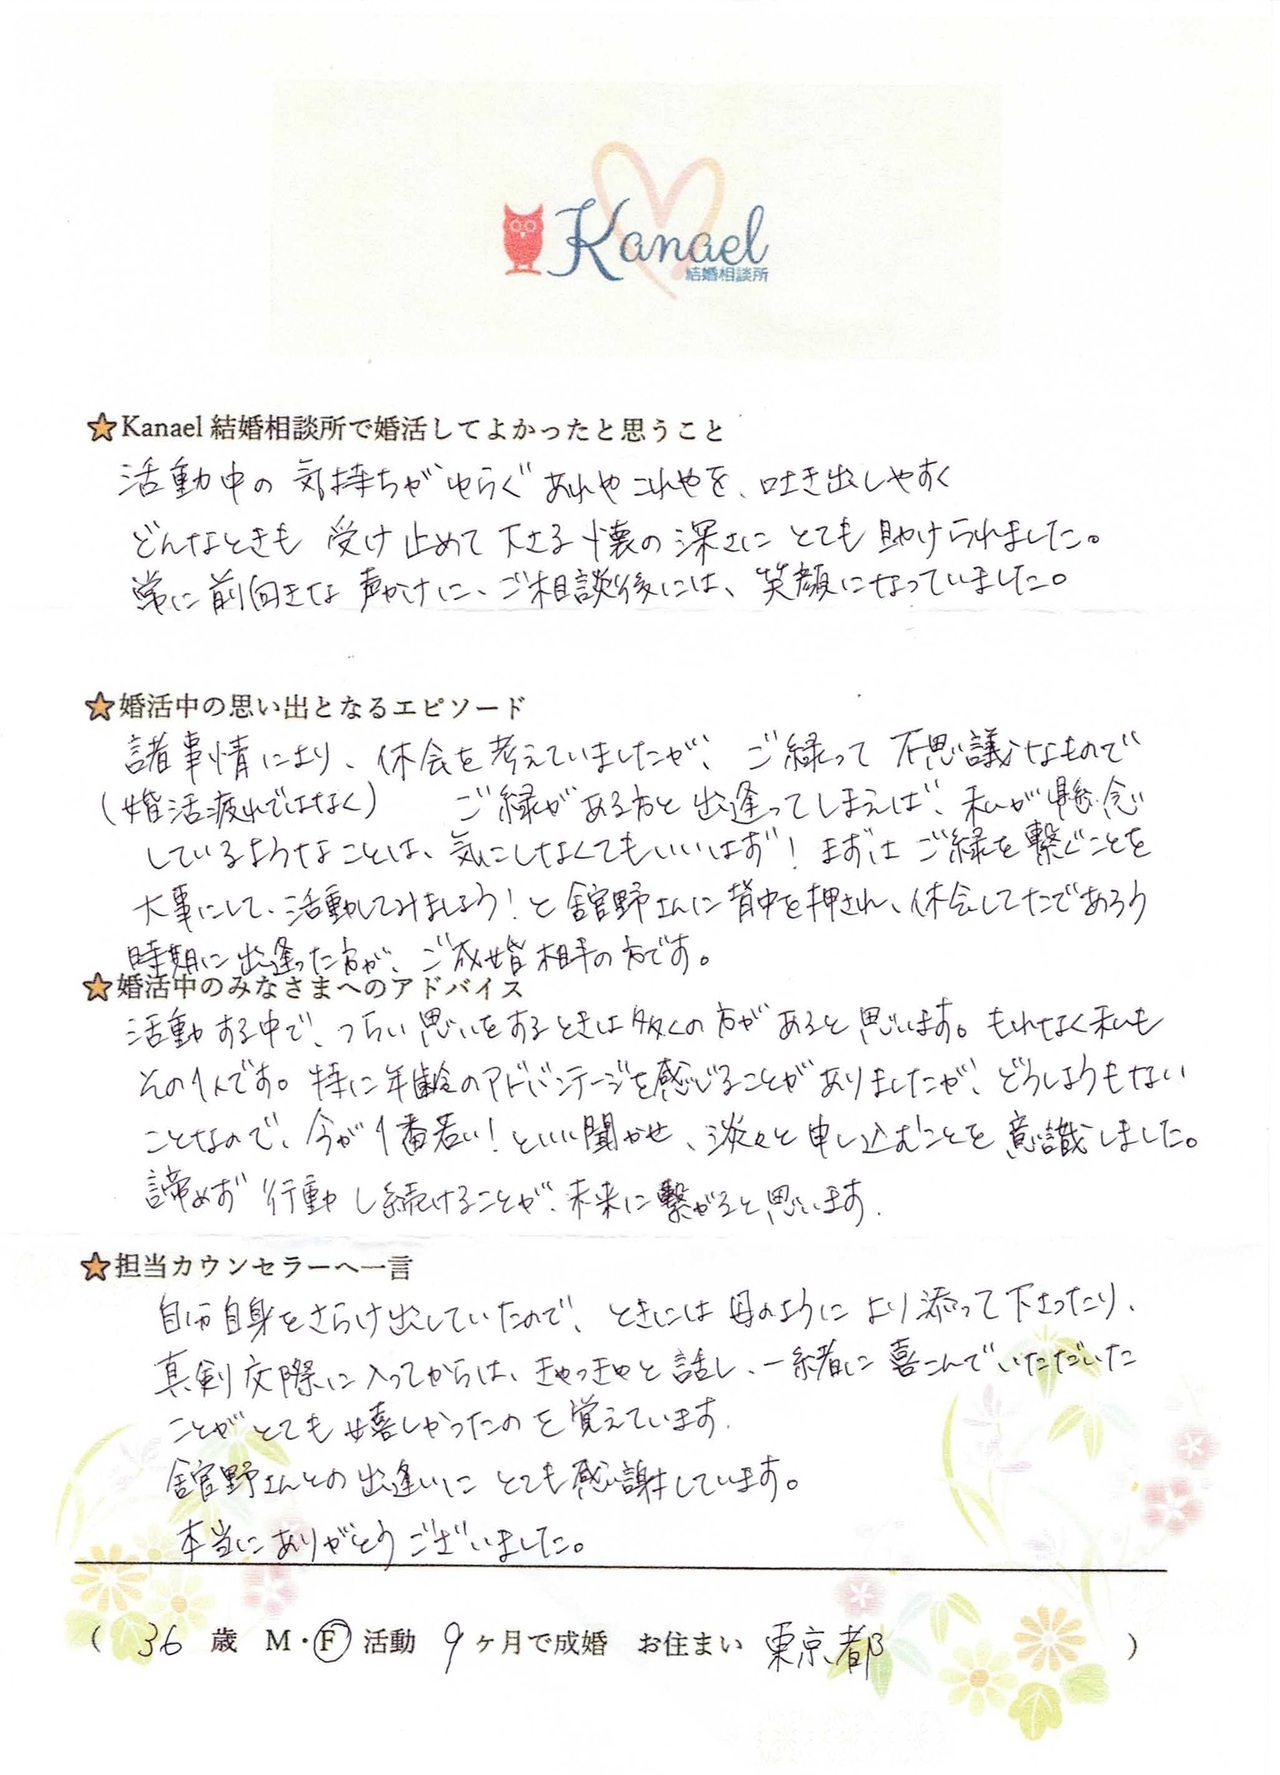 Kanael
結婚相談所
★Kanael 結婚相談所で婚活してよかったと思うこと
活動中の気持ちがゆらぐあれやこれやを、吐き出しやすく
どんなときも受け止めて下さる懐の深さにとても助けられました。
常に前向きな声かけに、ご相談後には、笑顔になっていました。
★婚活中の思い出となるエピソード
諸事情により、休会を考えていましたが、ご縁って不思議なもので
(婚活疲れではなく) ご縁がある方と出逢ってしまえば、私が懸念
しているようなことは、気にしなくてもいいはず！まずはご縁を繋ぐことを
大事にして、活動してみましょう！と舘野さんに背中を押され、休会してたであろう
時期に出逢った方が、ご成婚相手の方です。
★婚活中のみなさまへのアドバイス
活動する中で、つらい思いをするときは多くの方があると思います。もれなく私も
その1人です。特に年齢のアドバンテージを感じることがありましたが、どうしようもない
ことなので、今が1番若い！といい聞かせ、淡々と申し込むことを意識しました。
諦めず行動し続けることが、未来に繋がると思います.
★担当カウンセラーへ一言
自分自身をさらけ出していたので、ときには母のようにより添って下さったり、
真剣交際に入ってからは、きゃっきゃと話し、一緒に喜こんでいただいた
ことがとても嬉しかったのを覚えています.
舘野さんとの出逢いにとても感謝しています。
本当にありがとうございました。
( 36 歳 M・F 活動 9ヶ月で成婚 お住まい 東京都 )